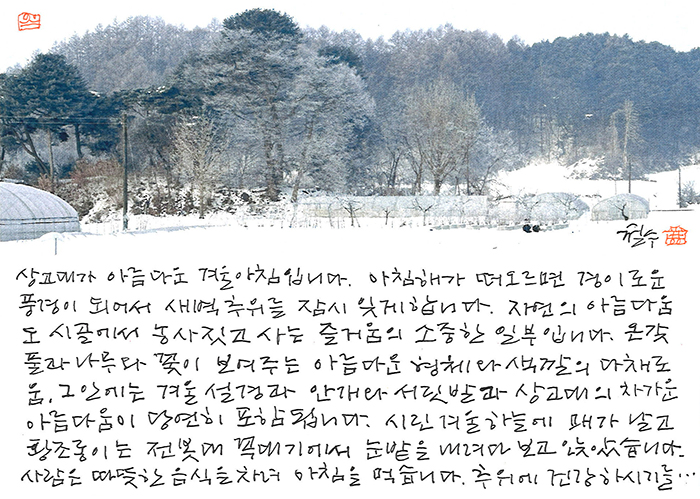 철수
상고대가 아름다운 겨울아침입니다. 아침해가 떠오르면 경이로운
풍경이 되어서 새벽추위를 잠시 잊게합니다. 자연의 아름다움
도 시골에서 농사짓고 사는 즐거움의 소중한 일부입니다. 온갖
풀과 나무와 꽃이 보여주는 아름다운 형체와 색깔의 다채로
움. 그 안에는 겨울 설경과 안개와 서릿발과 상고대의 차가운
아름다움이 당연히 포함됩니다. 시린 겨울하늘에 매가 날고
황조롱이는 전봇대 꼭대기에서 눈밭을 내려다 보고 앉았습니다.
사람은 따뜻한 음식을 차려 아침을 먹습니다. 추위에 건강하시기를…